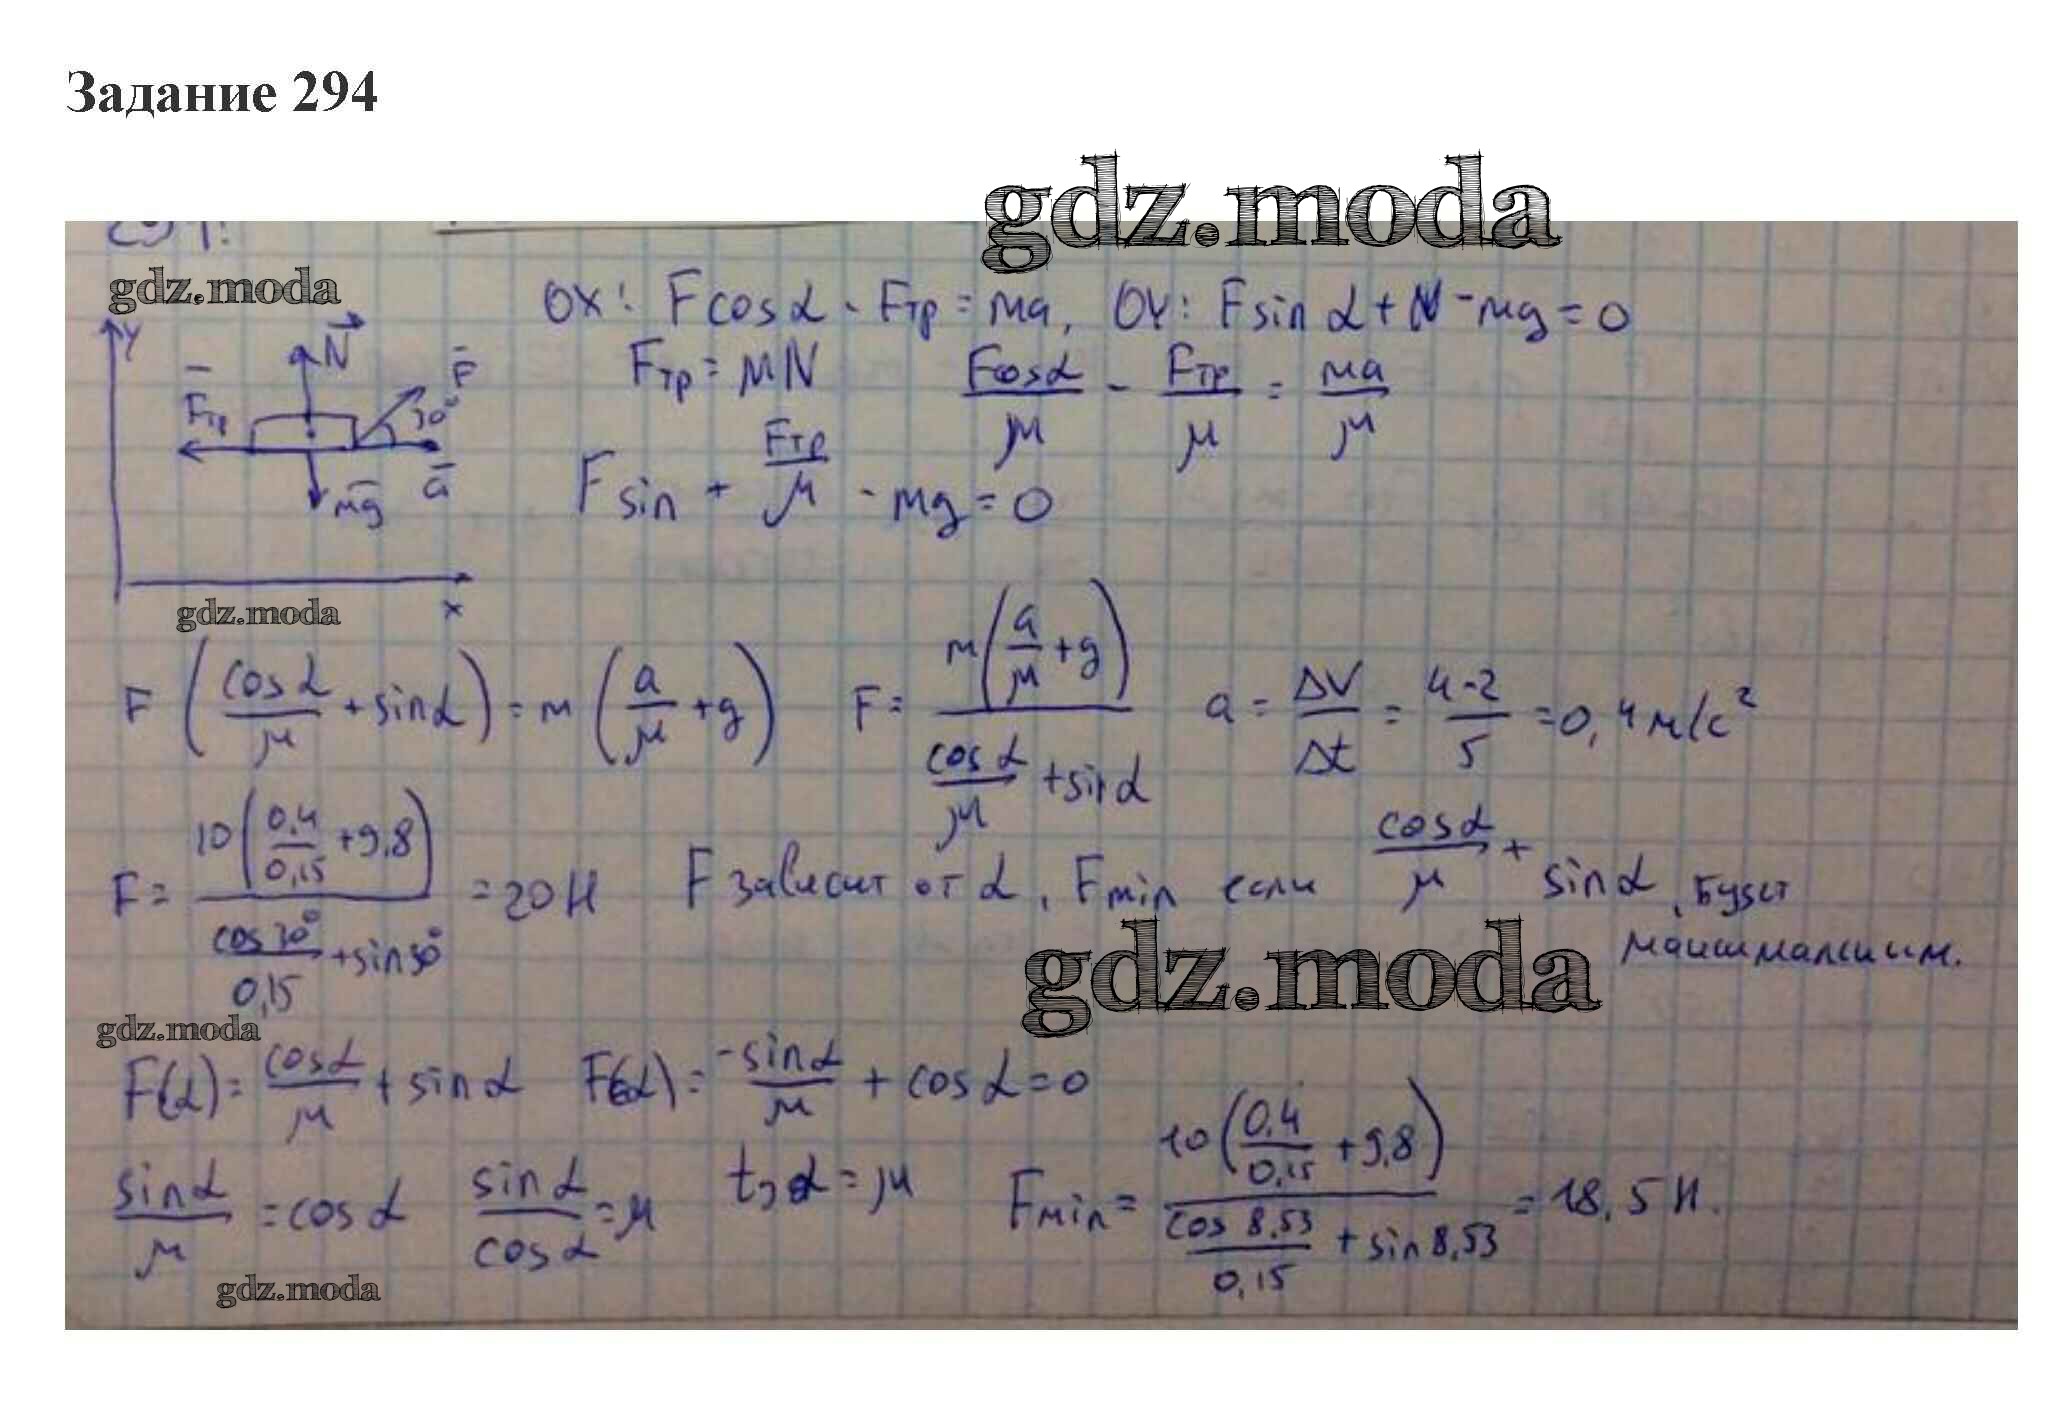 Задание 294
gdz.moda
gdz.moda
OX: F cos α - Fтр = ma, OY: F sin α + N - mg = 0
Y N F
Fтр 30°
mg a
x
Fтр = μN F cos α / μ - Fтр / μ = ma / μ
F sin + Fтр / μ - mg = 0
gdz.moda
F (cos α / μ + sin α) = m (a / μ + g) F = m (a / μ + g) / (cos α / μ + sin α) a = ΔV / Δt = 4-2 / 5 = 0,4 м/с²
F = 10 (0,4 / 0,15 + 9,8) / (cos 30° / 0,15 + sin 30°) = 20 Н F зависит от α, Fmin если cos α / μ + sin α, будет
максимальным.
gdz.moda
gdz.moda
F(α) = cos α / μ + sin α F(α) = -sin α / μ + cos α = 0
sin α / μ = cos α sin α / cos α = μ tg α = μ Fmin = 10 (0,4 / 0,15 + 9,8) / (cos 8,53 / 0,15 + sin 8,53) = 18,5 Н.
gdz.moda